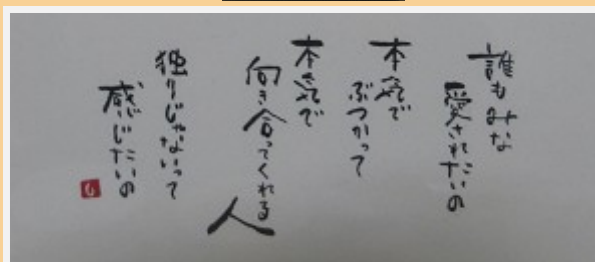 誰もみな
愛されたいの
本気で
ぶつかって
本気で
向き合ってくれる
人
独りじゃないって
感じたいの